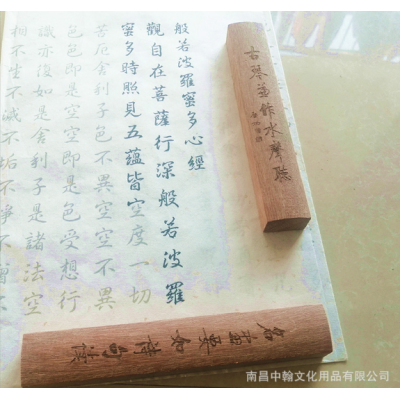 般若波羅蜜多心經
觀自在菩薩行深般若波羅
蜜多時照見五蘊皆空度一切
苦厄舍利子色不異空空不異
色色即是空空即是色受想行
識亦復如是舍利子是諸法空
相不生不滅不垢不淨不增不
古琴并作水聲聽
名畫要如詩句讀
南昌中翰文化用品有限公司